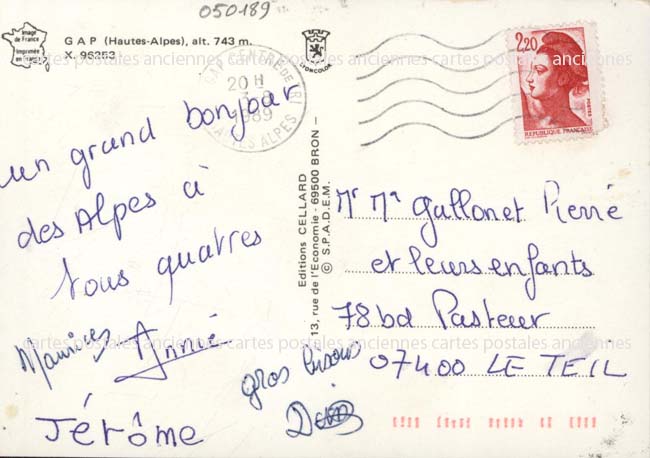 050189
Image
de France
Imprimée
en France
GAP (Hautes-Alpes), alt. 743 m.
X. 96353
LYONCOLOR
GAP CENTRE DE TRI
20 H
1989
HAUTES ALPES
2,20
POSTES
REPUBLIQUE FRANÇAISE
cartes postales anciennes cartes postales anciennes cartes postales anciennes
un grand bonjour
des Alpes à
tous quatres
Maurice
Annie
Jérôme
gros bisous
Editions CELLARD
13, rue de l'Economie - 69500 BRON -
© S.P.A.D.E.M.
Mr Me Gallonet Pierre
et leurs enfants
78 bd Pasteur
07400 LE TEIL
cartes postales anciennes cartes postales anciennes cartes postales anciennes